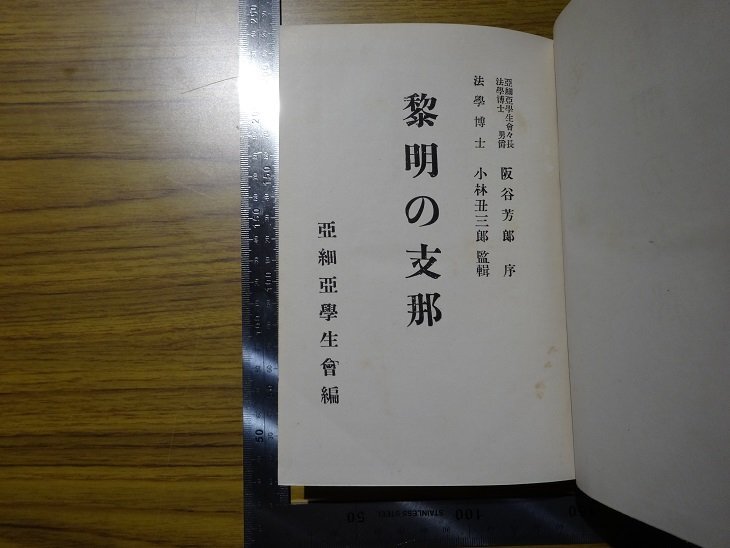 亞細亞學生會々長
法學博士 男爵 阪谷芳郎 序
法學博士 小林丑三郎 監輯
黎明の支那
亞細亞學生會編
50 STAINLESS STEEL 100
50
100
150